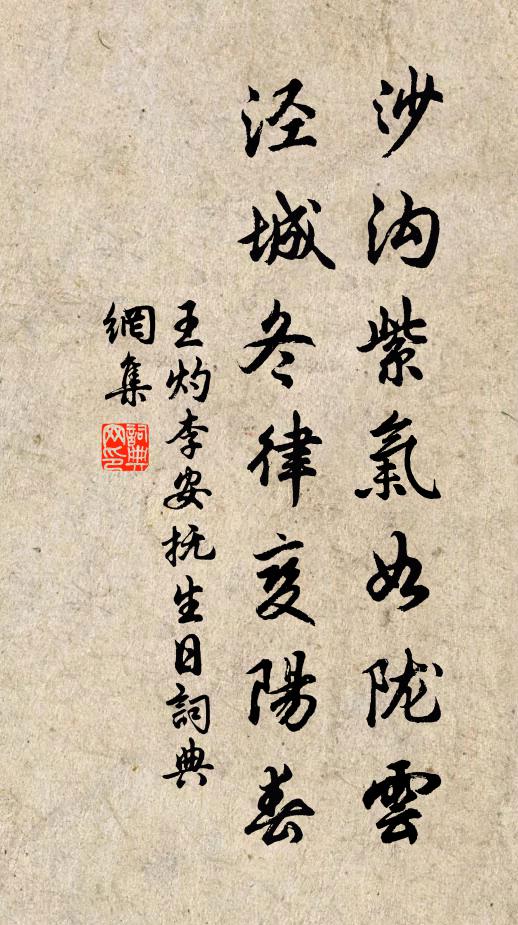 沙沟紫氣如陇雲
泾城冬律变陽春
王灼李安抚生日詞典
網集
詞典
网印